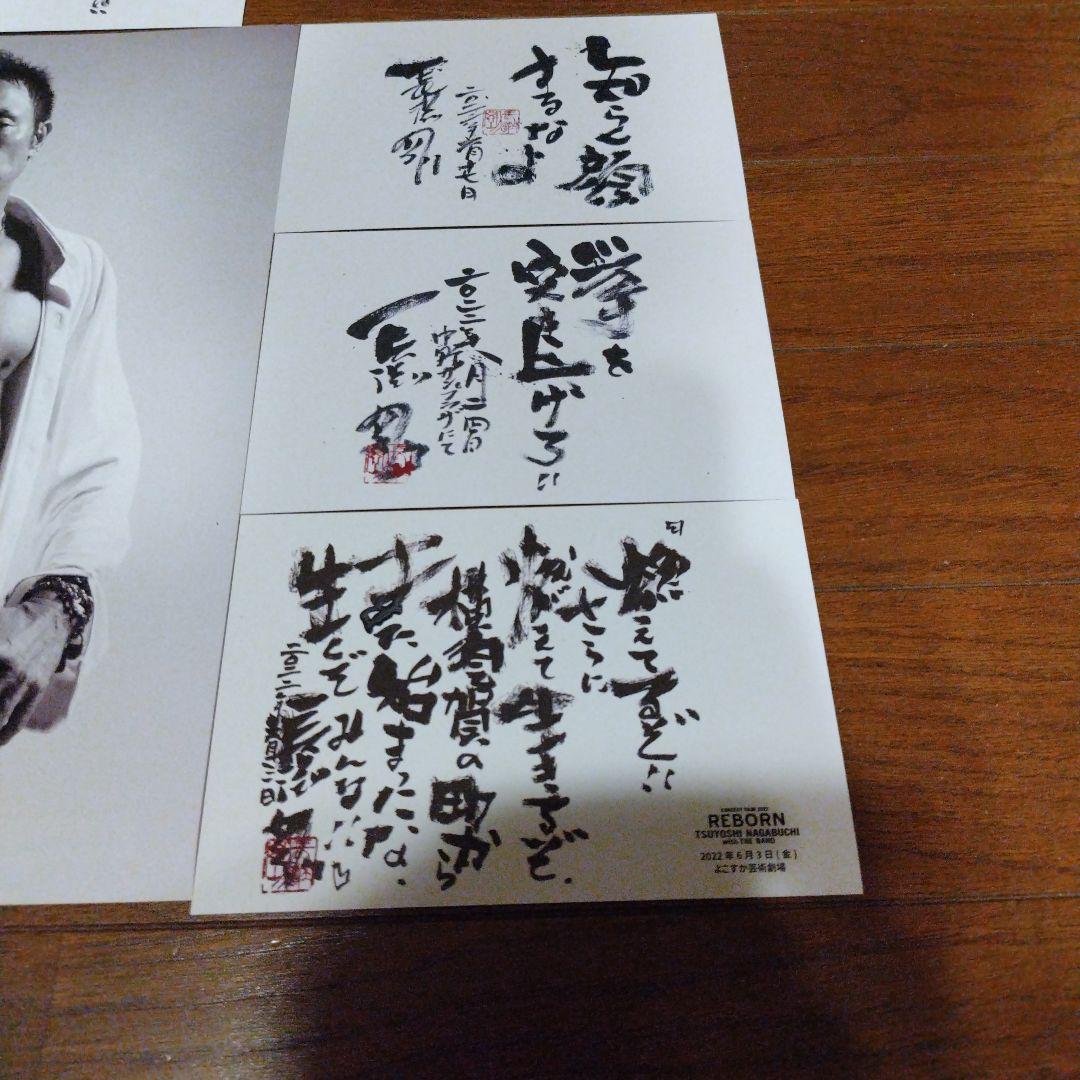 知らん顔
するなよ
長渕 剛
拳を
突き上げろ!!
二〇二二年八月二四日
中野サンプラザにて
長渕 剛
「燃えてるぞ!!
さらに
燃えて生きるぞ、
横須賀の町から
さぁた始まったな、
生くぞみんな!!」
二〇二二年六月三日
長渕 剛
CONCERT TOUR 2022
REBORN
TSUYOSHI NAGABUCHI
with THE BAND
2022年6月3日(金)
よこすか芸術劇場